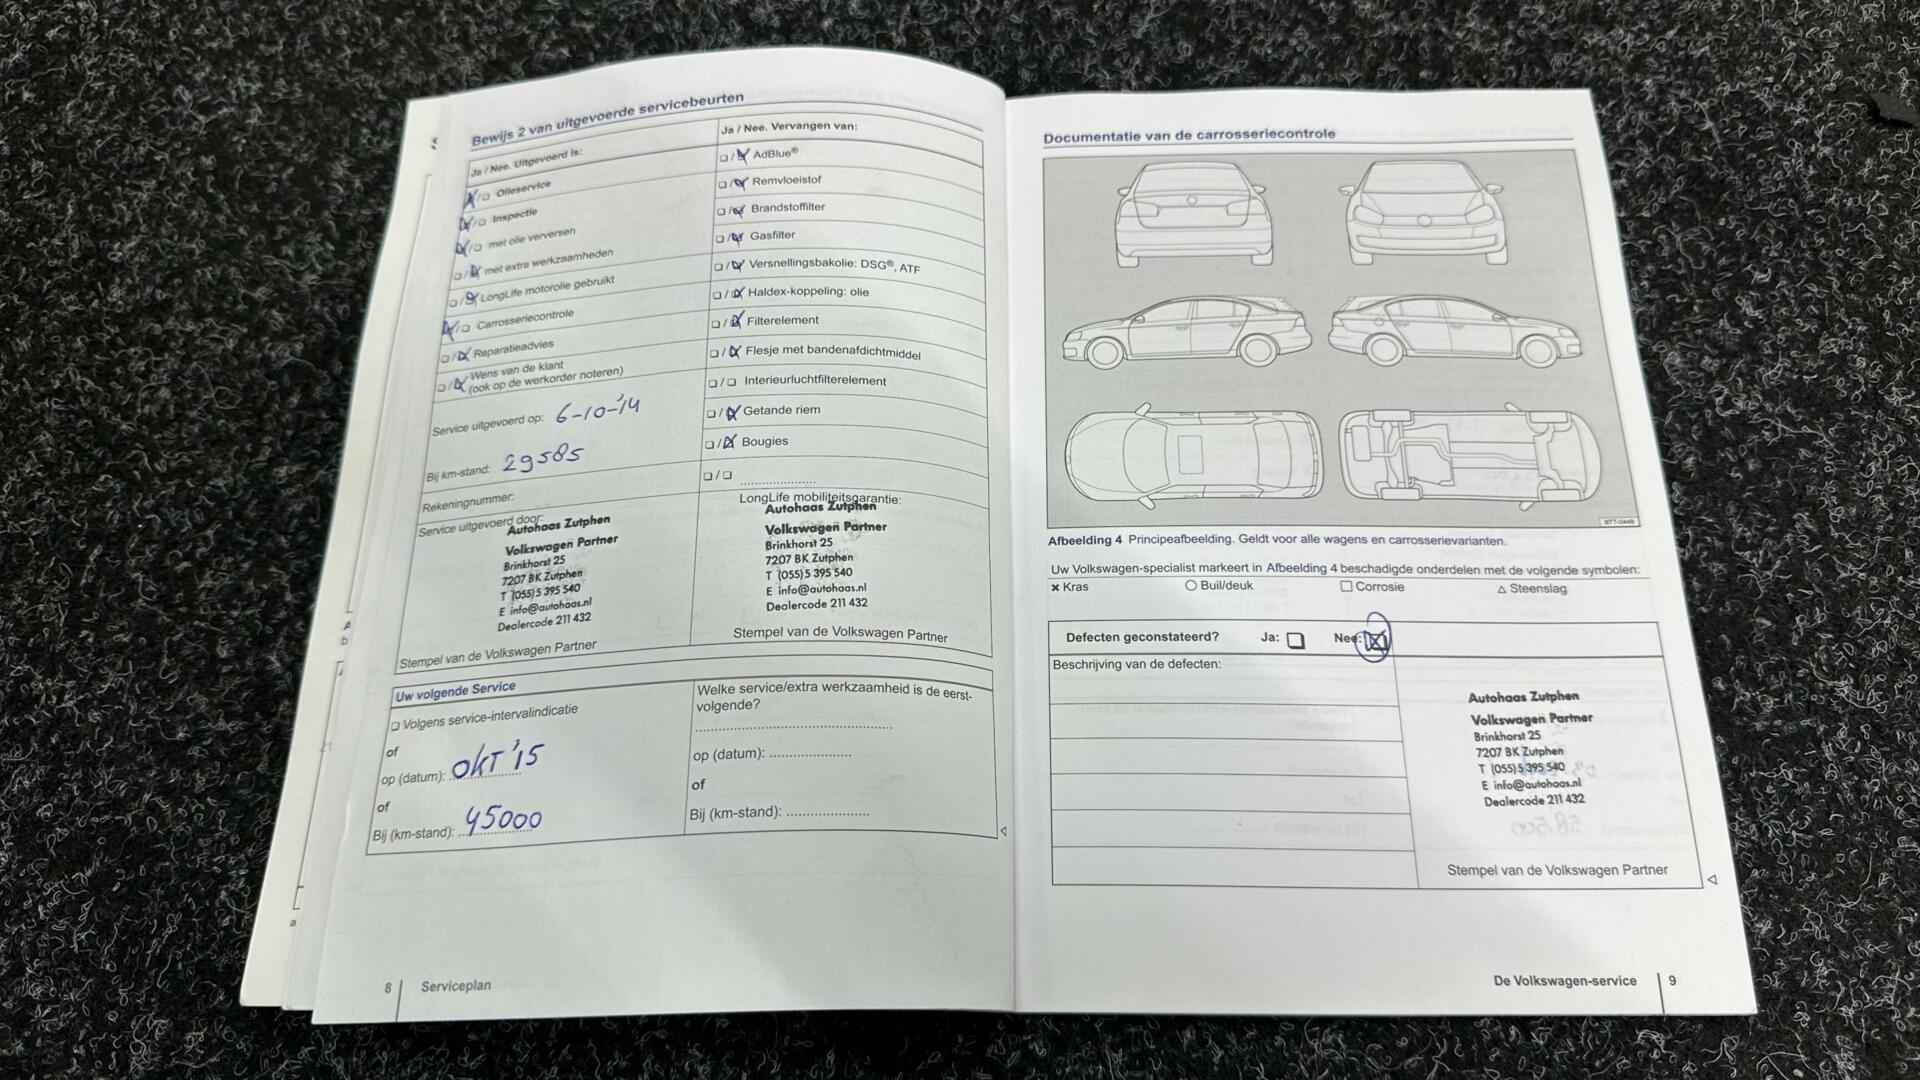 Bewijs 2 van uitgevoerde servicebeurten
Ja / Nee. Uitgevoerd is:
Olieservice
Inspectie
met olie verversen
met extra werkzaamheden
LongLife motorolie gebruikt
Carrosseriecontrole
Reparatieadvies
Wens van de klant
(ook op de werkorder noteren)
Service uitgevoerd op: 6-10-'14
Bij km-stand: 29585
Rekeningnummer:
Service uitgevoerd door:
Autohaas Zutphen
Volkswagen Partner
Brinkhorst 25
7207 BK Zutphen
T (055) 5 395 540
E info@autohaas.nl
Dealercode 211 432
Stempel van de Volkswagen Partner
Ja / Nee. Vervangen van:
AdBlue®
Remvloeistof
Brandstoffilter
Gasfilter
Versnellingsbakolie: DSG®, ATF
Haldex-koppeling: olie
Filterelement
Flesje met bandenafdichtmiddel
Interieurluchtfilterelement
Getande riem
Bougies
LongLife mobiliteitsgarantie:
Autohaas Zutphen
Volkswagen Partner
Brinkhorst 25
7207 BK Zutphen
T (055) 5 395 540
E info@autohaas.nl
Dealercode 211 432
Stempel van de Volkswagen Partner
Uw volgende Service
Volgens service-intervalindicatie
of
op (datum): OKT '15
of
Bij (km-stand): 45000
Welke service/extra werkzaamheid is de eerst-
volgende?
op (datum):
of
Bij (km-stand):
8 Serviceplan
Documentatie van de carrosseriecontrole
Afbeelding 4 Principeafbeelding. Geldt voor alle wagens en carrosserievarianten.
Uw Volkswagen-specialist markeert in Afbeelding 4 beschadigde onderdelen met de volgende symbolen:
× Kras ○ Buil/deuk □ Corrosie △ Steenslag
Defecten geconstateerd? Ja: Nee:
Beschrijving van de defecten:
Autohaas Zutphen
Volkswagen Partner
Brinkhorst 25
7207 BK Zutphen
T (055) 5 395 540
E info@autohaas.nl
Dealercode 211 432
Stempel van de Volkswagen Partner
De Volkswagen-service 9